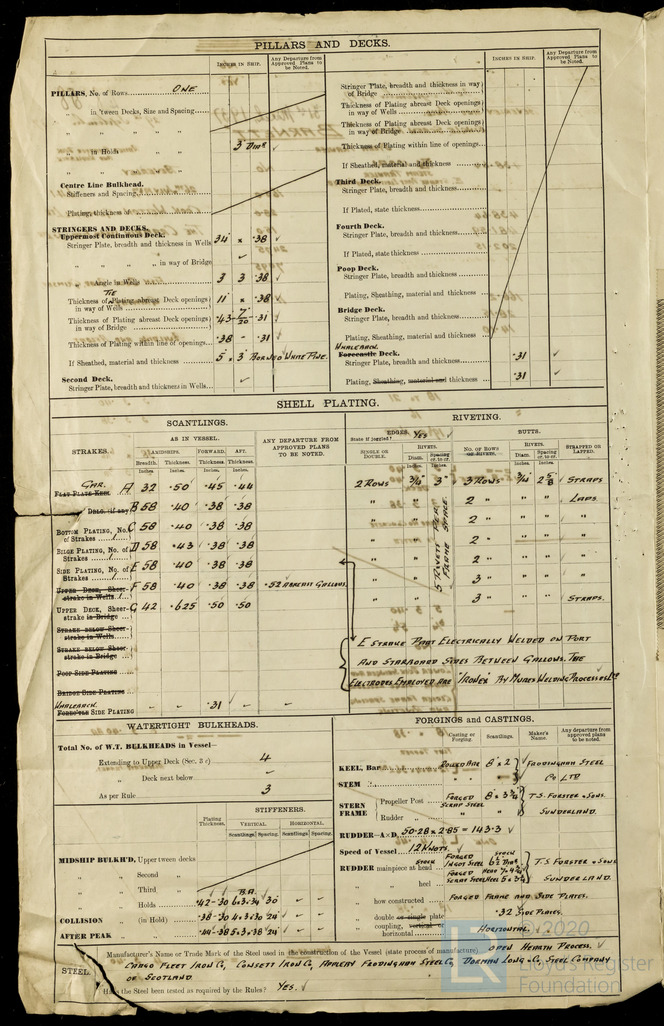 PILLARS AND DECKS.
INCHES IN SHIP.
Any Departure from Approved Plans to be Noted.
INCHES IN SHIP.
Any Departure from Approved Plans to be Noted.
PILLARS, No. of Rows ONE
„ in 'tween Decks, Size and Spacing
„ in Holds „ „ 3 DMR ✓
Centre Line Bulkhead.
Stiffeners and Spacing
Plating, thickness of
STRINGERS AND DECKS.
Uppermost Continuous Deck.
Stringer Plate, breadth and thickness in Wells 34 x .38 ✓
„ „ „ „ in way of Bridge ✓
Angle in Wells 3 3 .38 ✓
TIE
Thickness of Plating abreast Deck openings in way of Wells 11 x .38 ✓
Thickness of Plating abreast Deck openings in way of Bridge .43 - 7/20 - .31 ✓
Thickness of Plating within line of openings .38 - .31 ✓
If Sheathed, material and thickness 5 x 3 BORNEO WHITE PINE.
Second Deck.
Stringer Plate, breadth and thickness in Wells ✓
Stringer Plate, breadth and thickness in way of Bridge
Thickness of Plating abreast Deck openings in way of Wells
Thickness of Plating abreast Deck openings in way of Bridge
Thickness of Plating within line of openings
If Sheathed, material and thickness
Third Deck.
Stringer Plate, breadth and thickness
If Plated, state thickness
Fourth Deck.
Stringer Plate, breadth and thickness
If Plated, state thickness
Poop Deck.
Stringer Plate, breadth and thickness
Plating, Sheathing, material and thickness
Bridge Deck.
Stringer Plate, breadth and thickness
Plating, Sheathing, material and thickness
WHALEBACK
Forecastle Deck.
Stringer Plate, breadth and thickness .31 ✓
Plating, Sheathing, material and thickness .31 ✓
SHELL PLATING.
SCANTLINGS.
RIVETING.
STRAKES.
AS IN VESSEL.
ANY DEPARTURE FROM APPROVED PLANS TO BE NOTED.
AMIDSHIPS. FORWARD. AFT.
Breadth. Thickness. Thickness. Thickness.
Inches. Inches. Inches. Inches.
EDGES. YES
State if joggled?
SINGLE OR DOUBLE.
RIVETS.
Diam. Spacing cr. to cr.
Inches. Inches.
BUTTS.
No. of Rows of Rivets.
RIVETS.
Diam. Spacing cr. to cr.
Inches. Inches.
STRAPPED OR LAPPED.
GAR.
Flat Plate Keel A 32 .50 .45 .44 2 ROWS 3/4 3" 3 ROWS 3/4 2 5/8 STRAPS
„ Dblg. if any B 58 .40 .38 .38 „ „ 2 „ „ „ LAPS.
Bottom Plating, No. of Strakes 1 C 58 .40 .38 .38 „ „ 2 „ „ „ „
Bilge Plating, No. of Strakes 1 D 58 .43 .38 .38 „ „ 2 „ „ „ „
Side Plating, No. of Strakes 1 E 58 .40 .38 .38 „ „ 2 „ „ „ „
Upper Deck, Sheerstrake in Wells F 58 .40 .38 .38 .52 ABREAST GALLOWS. „ „ 3 „ „ „ „
Upper Deck, Sheerstrake in Bridge G 42 .625 .50 .50 3 „ „ „ STRAPS.
5 RIVETS PER FRAME SPACE
Strake below Sheerstrake in Wells
Strake below Sheerstrake in Bridge
Poop Side Plating
Bridge Side Plating
WHALEBACK
Forec'tle Side Plating .31
E STRAKE PART ELECTRICALLY WELDED ON PORT
AND STARBOARD SIDES BETWEEN GALLOWS. THE
ELECTRODES EMPLOYED ARE "IRONEX" BY MUREX WELDING PROCESSES LTD
WATERTIGHT BULKHEADS.
Total No. of W.T. BULKHEADS in Vessel—
Extending to Upper Deck (Sec. 3 c) 4
„ Deck next below
As per Rule 3
STIFFENERS.
Plating Thickness.
VERTICAL. HORIZONTAL.
Scantlings. Spacing. Scantlings. Spacing.
MIDSHIP BULKH'D, Upper tween decks
„ „ Second „
„ „ Third „ B.A.
„ „ Holds .42-.30 6 x 3 x .34 30
COLLISION „ (in Hold) .38-.30 4 x 3 x .30 24
AFTER PEAK „ „ .44-.38 5 x 3 x .38 24
FORGINGS and CASTINGS.
Casting or Forging.
Scantlings.
Maker's Name.
Any departure from approved plans to be noted.
KEEL, Bar ROLLED BAR 8" x 2 FRODINGHAM STEEL
STEM „ CO LTD
STERN FRAME Propeller Post FORGED SCRAP STEEL 8" x 3 3/4 T.S. FORSTER & SONS.
Rudder „ SUNDERLAND.
RUDDER—A×D 50.28 x 2.85 = 143.3
Speed of Vessel 12 KNOTS.
RUDDER mainpiece at head STOCK FORGED INGOT STEEL STOCK T.S. FORSTER & SONS
„ heel FORGED SCRAP STEEL SUNDERLAND.
„ how constructed FORGED FRAME AND SIDE PLATES.
„ double or single plate .32 SIDE PLATES.
„ coupling, vertical or horizontal HORIZONTAL.
STEEL.
Manufacturer's Name or Trade Mark of the Steel used in the construction of the Vessel (state process of manufacture). OPEN HEARTH PROCESS.
CARGO FLEET IRON CO, CONSETT IRON CO, APPLEBY FRODINGHAM STEEL CO, DORMAN LONG & CO, STEEL COMPANY
OF SCOTLAND.
Has the Steel been tested as required by the Rules? YES.
© 2020
Lloyd's Register
Foundation